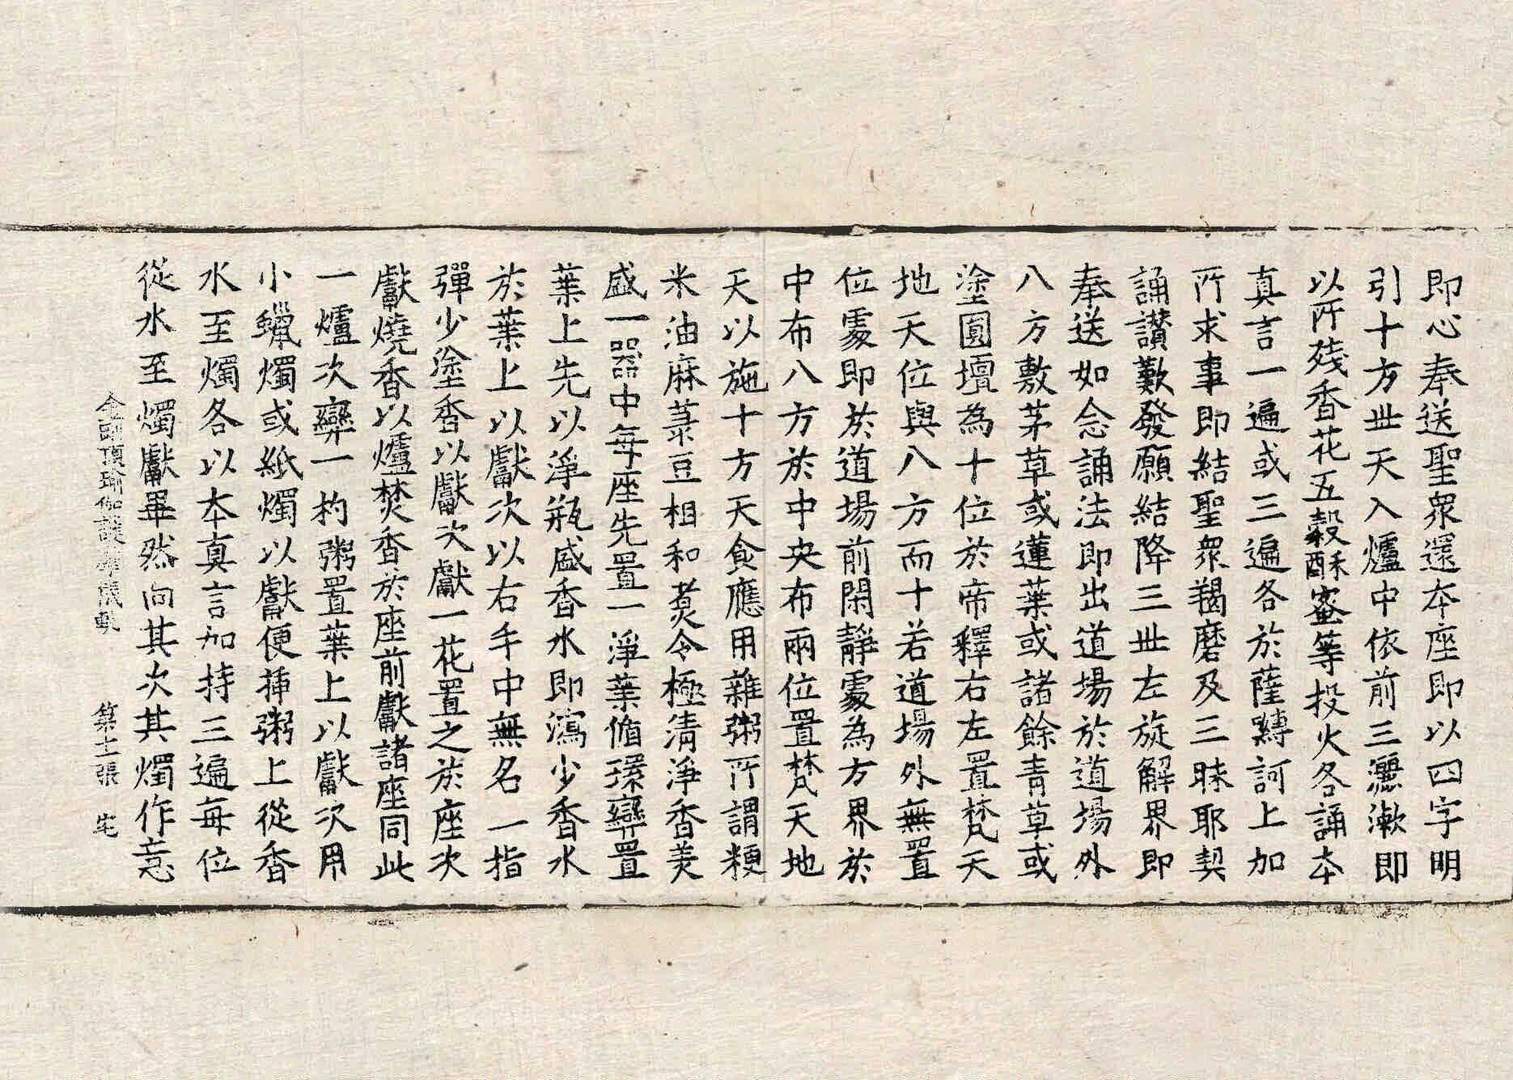 即心奉送聖衆還本座即以四字明
引十方丗天入爐中依前三灑漱即
以所残香花五穀酥蜜等投火各誦本
真言一遍或三遍各於薩嚩訶上加
所求事即結聖衆羯磨及三昧耶契
誦讃歎發願結降三丗左旋解界即
奉送如念誦法即出道場於道場外
八方敷茅草或蓮葉或諸餘青草或
塗圓壇為十位於帝釋右左置梵天
地天位與八方而十若道場外無置
位處即於道場前閑靜處為方界於
中布八方於中央布兩位置梵天地
天以施十方天食應用雜粥所謂粳
米油麻菉豆相和煮令極清淨香美
盛一器中每座先置一淨葉脩環舉置
葉上先以淨瓶盛香水即瀉少香水
於葉上以獻次以右手中無名一指
彈少塗香以獻次獻一花置之於座次
獻燒香以爐焚香於座前獻諸座同此
一爐次舉一杓粥置葉上以獻次用
小蠟燭或紙燭以獻便揷粥上從香
水至燭各以本真言加持三遍每位
從水至燭獻畢然向其次其燭作意
金剛頂瑜伽護摩儀軌 第十二張 宅